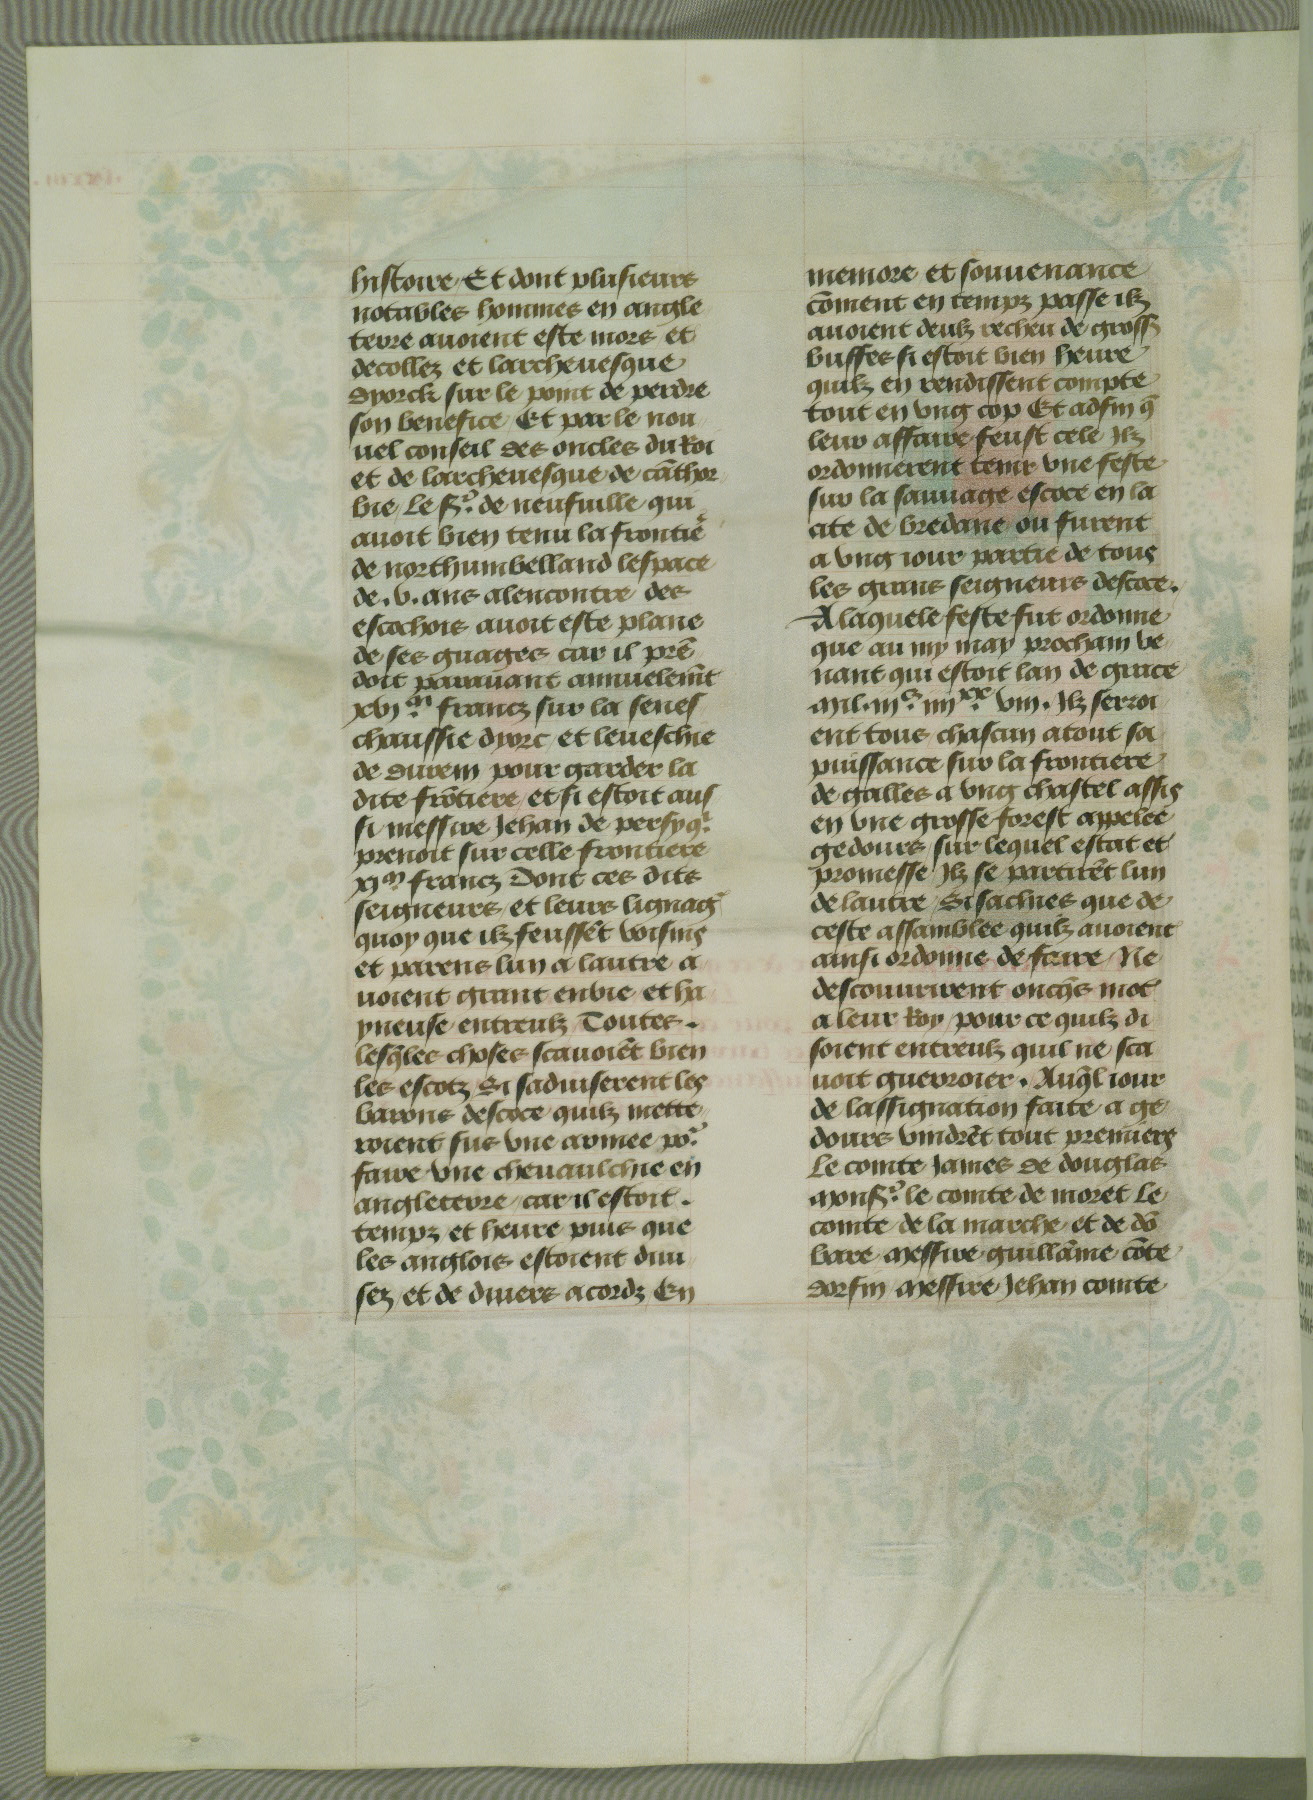 histoire Et dont plusieurs
notables hommes en angle
terre auoient este mors et
decollez et larcheuesque
dyorck sur le point de perdre
son benefice Et par le nou
uel conseil des oncles du Roi
et de larcheuesque de cãthor
bie Le sr de neufuille qui
auoit bien tenu la frontie
de northumbelland lespace
de .v. ans alencontre des
escochois auoit este plane
de ses guages car il prẽ
doit parauant annuelemẽt
xvjm francz sur la senes
chaussie dyorc et leueschie
de durem pour garder la
dite frõtiere et si estoit aus
si messire Jehan de persy qi
prenoit sur celle frontiere
xjm francz Dont ces dits
seigneurs et leurs lignag
quoy que ilz feussẽt voisins
et parens lun a lautre a
uoient grant enuie et ha
yneuse entreulz Toutes .
lesq̃les choses scauoiẽt bien
les escotz Si saduiserent les
barons descoce quilz mette
roient sus vne armee por
faire vne cheuaulchie en
angleterre car il estoit .
tempz et heure puis que
les anglois estoient diui
sez et de diuers acordz En
memore et souuenance
cõment en tempz passe ilz
auoient deulz recheu de gross
buffes si estoit bien heure
quilz en rendissent compte
tout en vng cop Et adfin q̃
leur affaire feust cele Jlz
ordonnerent tenir vne feste
sur la sauuage escoce en la
cite de bredane ou furent
a vng iour partie de tous
les grans seigneurs descoce .
A laquele feste fut ordonne
que au my may prochain ve
nant qui estoit lan de grace
Mil . iijc iiijxx viij . Jlz serroi
ent tous chascun atout sa
puissance sur la frontiere
de galles a vng chastel assis
en vne grosse forest appelee
gedours sur lequel estat et
promesse Jlz se partirẽt lun
de lautre Si sachies que de
ceste assamblee quilz auoient
ainsi ordonne de faire Ne
descouurirent oncq̃s mot
a leur Roy pour ce quilz di
soient entreulz quil ne sca
uoit guerroier . Auq̃l iour
de lassignation faite a ge
dours vindrẽt tout premiers
Le comte James de douglas
Monsr le comte de moret Le
comte de la marche et de dõ
bare Messire guillãme cõte
dorfin Messire Jehan comte